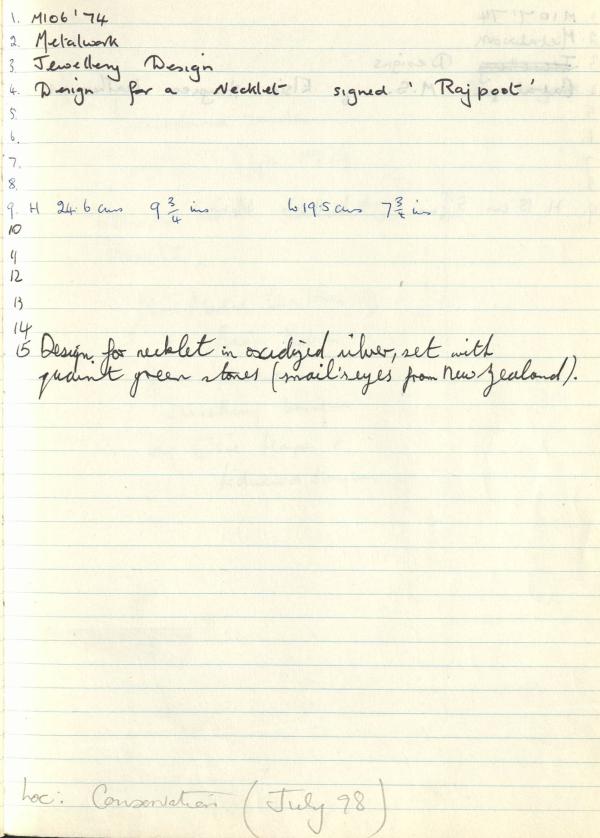 1. M106 '74
2. Metalwork
3. Jewellery Design
4. Design for a Necklet signed 'Rajpoot'
5.
6.
7.
8.
9. H 24.6 cms 9 3/4 ins W 19.5 cms 7 3/4 ins
10
11
12
13
14
15 Design for necklet in oxidized silver, set with
quaint green stones (snail's eyes from New Zealand).
Loc: Conservation (July 98)